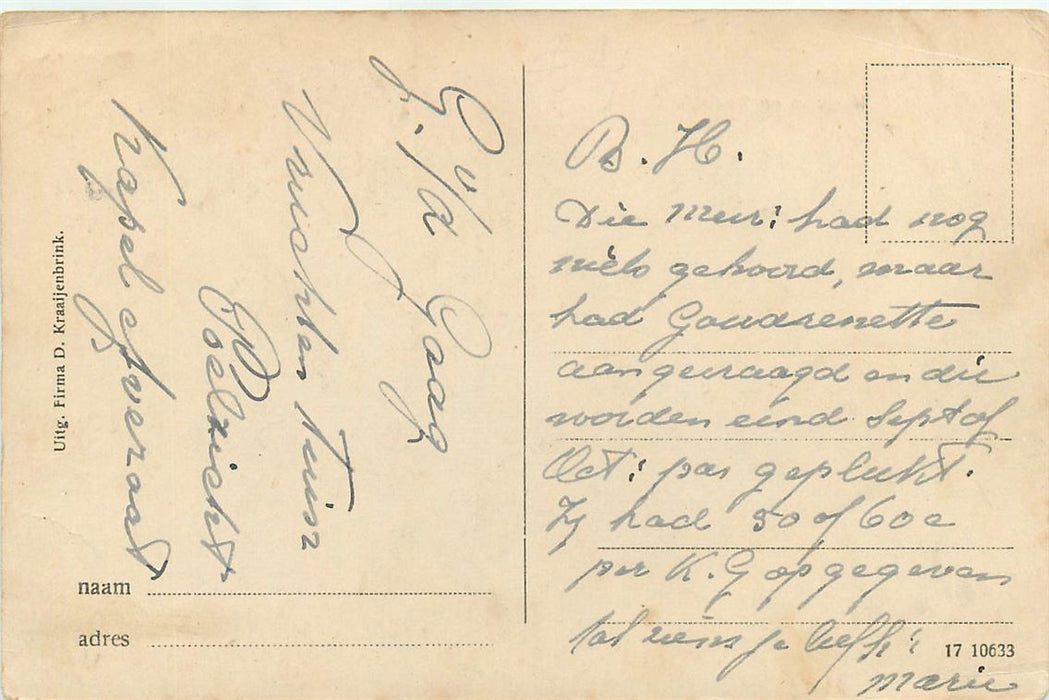 G. v/d Gaag
Vruchten Tuin
Poelzicht
Kapel Averaat
Uitg. Firma D. Kraaijenbrink.
naam
adres
B. H.
Die Mevr: had nog
niets gehoord, maar
had Goudrenette
aangevraagd en die
worden eind Sept of
Oct: pas geplukt.
Zy had 50 of 60 c
per K.G opgegeven
tot ziens je liefh:
Marie
17 10633